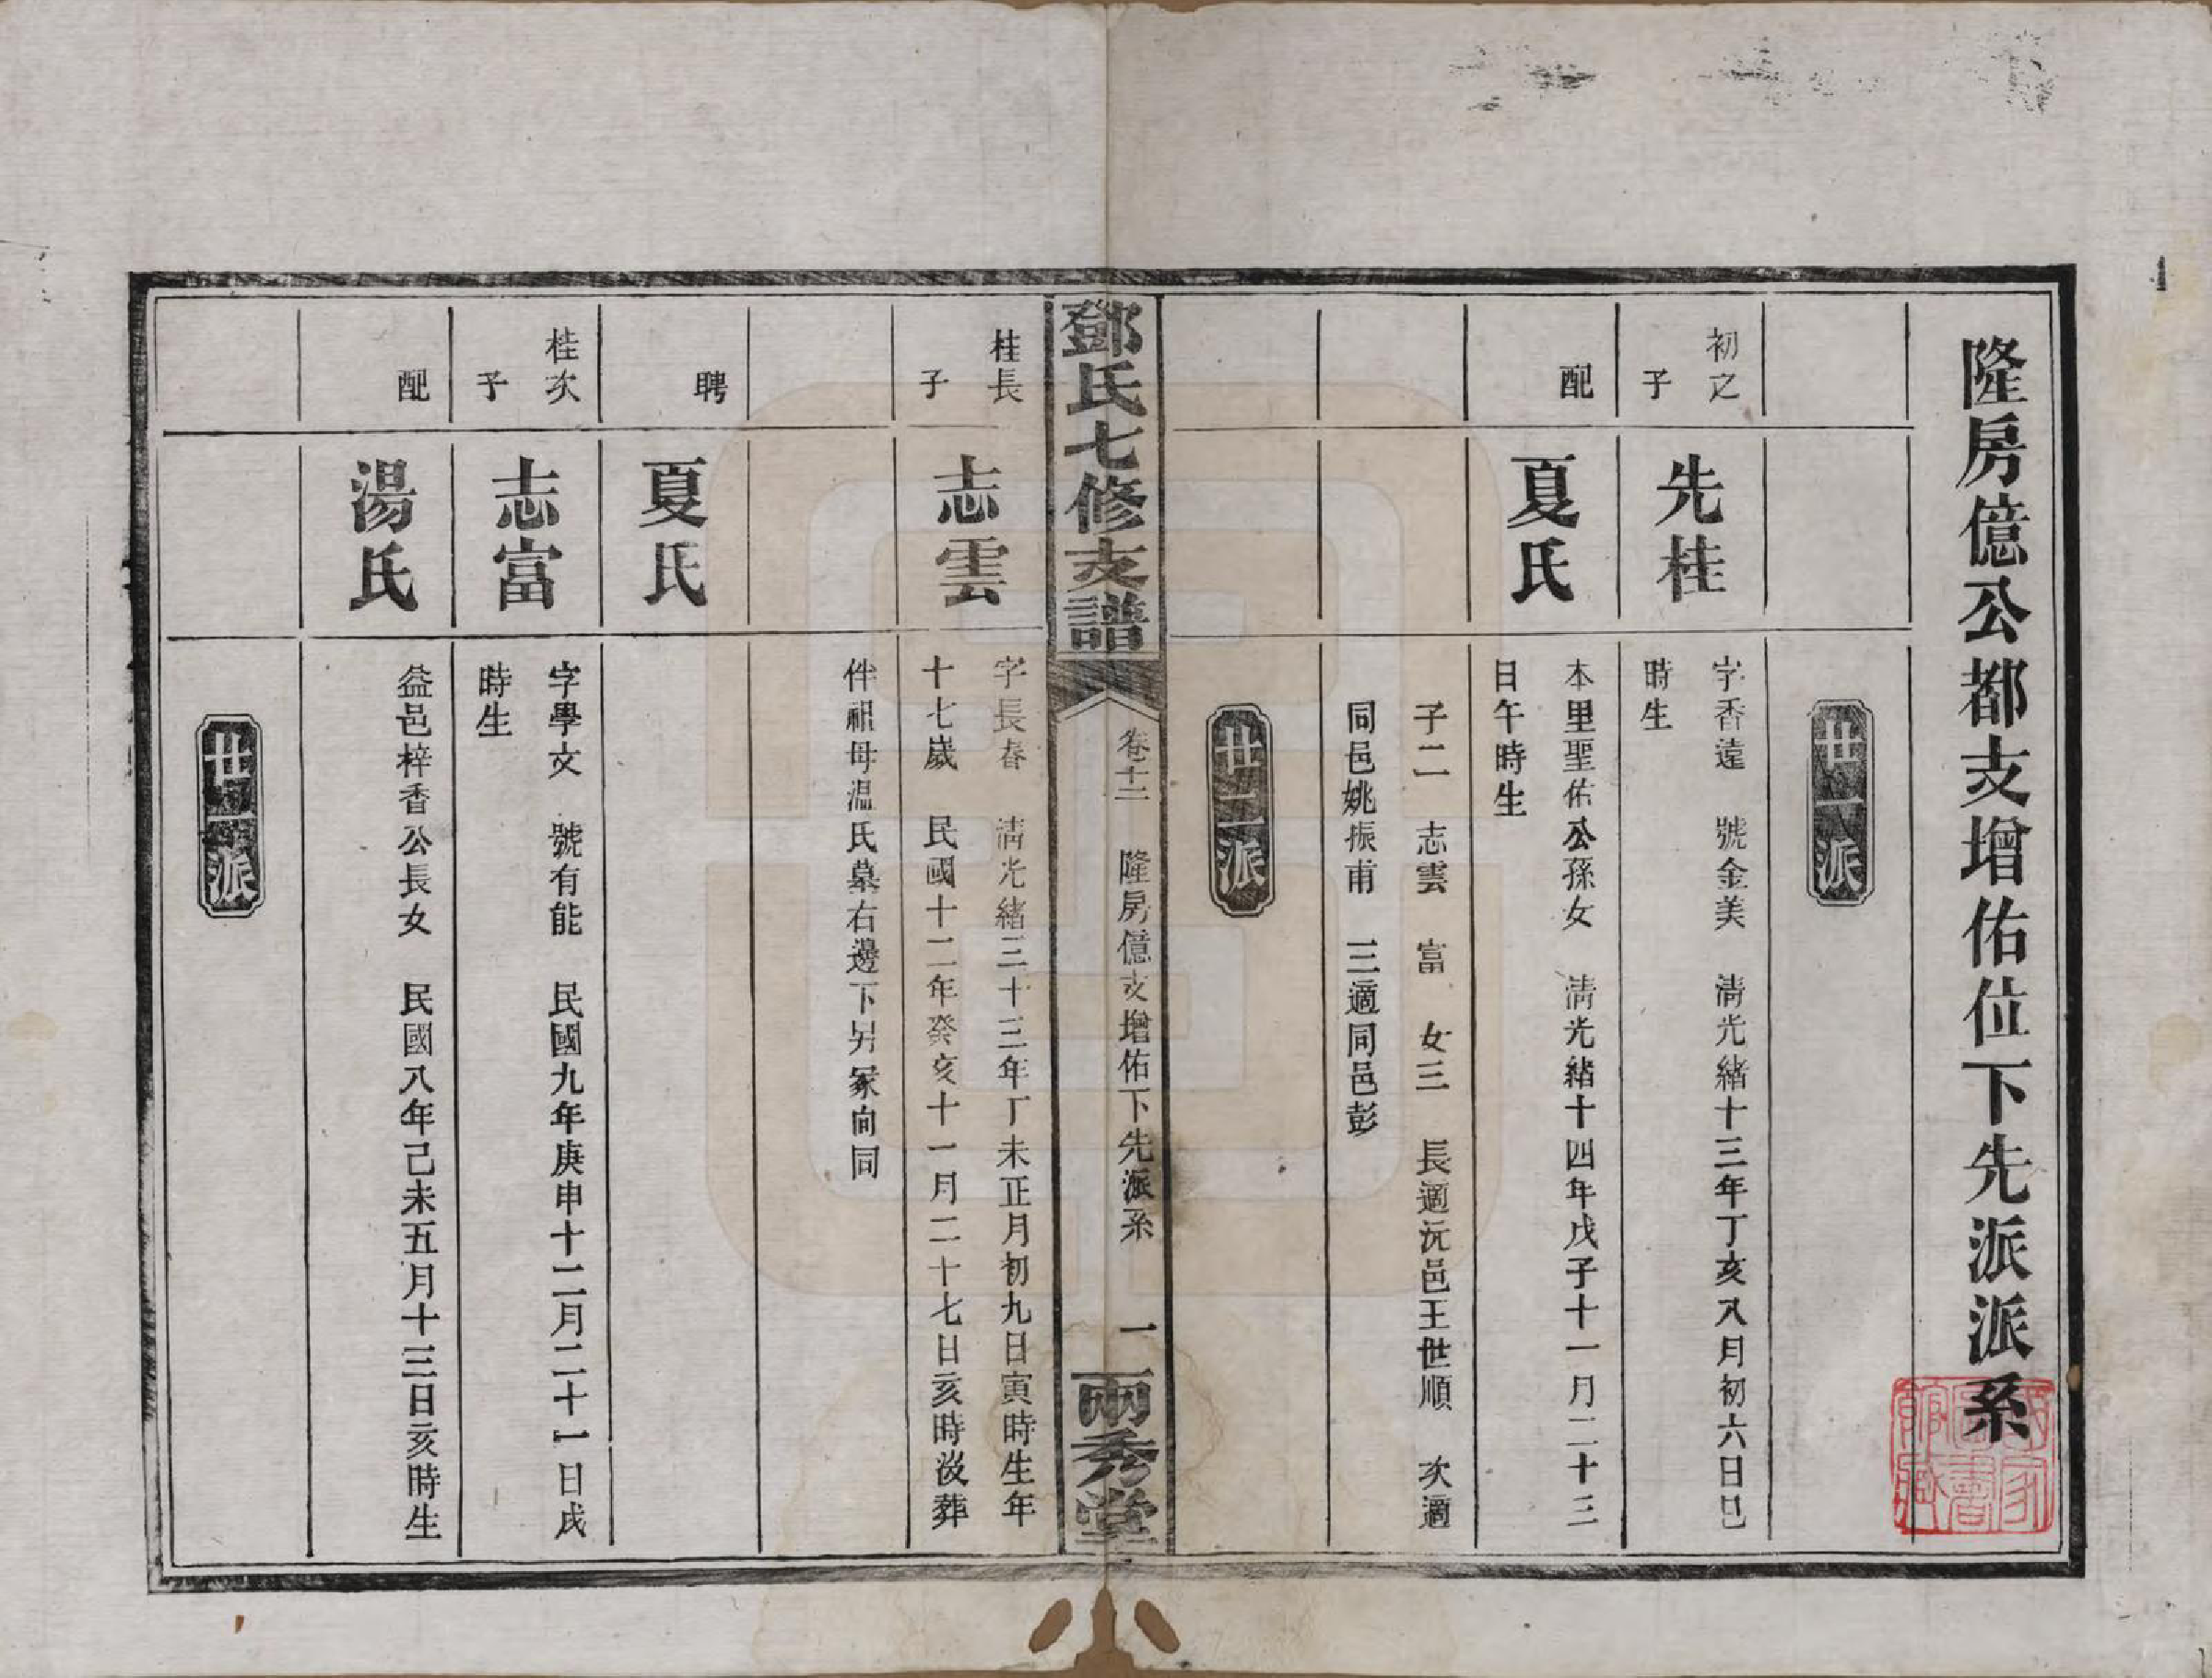 隆房億公都支增佑位下先派派系
廿一派
初之子
先桂
字香遠　號金美　清光緒十三年丁亥八月初六日巳
時生
配
夏氏
本里聖佑公孫女　清光緒十四年戊子十一月二十三
日午時生
子二　志雲　富　女三　長適沅邑王世順　次適
同邑姚振甫　三適同邑彭
廿二派
鄧氏七修支譜
卷十二　隆房億支增佑下先派系　一
兩秀堂
桂長子
志雲
字長春　清光緒三十三年丁未正月初九日寅時生年
十七歲　民國十二年癸亥十一月二十七日亥時歿葬
伴祖母温氏墓右邊下另冢向同
聘
夏氏
桂次子
志富
字學文　號有能　民國九年庚申十二月二十一日戌
時生
配
湯氏
益邑梓香公長女　民國八年己未五月十三日亥時生
廿三派
國家圖書館藏